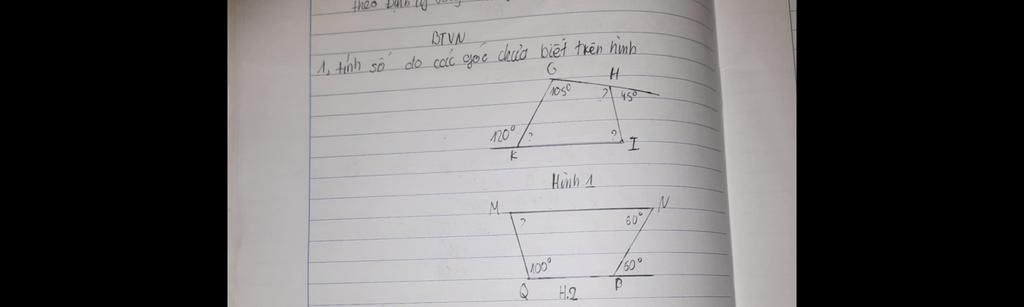 theo Định lý
BTVN
1, tính số đo các góc chưa biết trên hình
G H
105° ? 45°
120° ? ?
K I
Hình 1
M N
? 60°
100° 50°
Q H.2 P